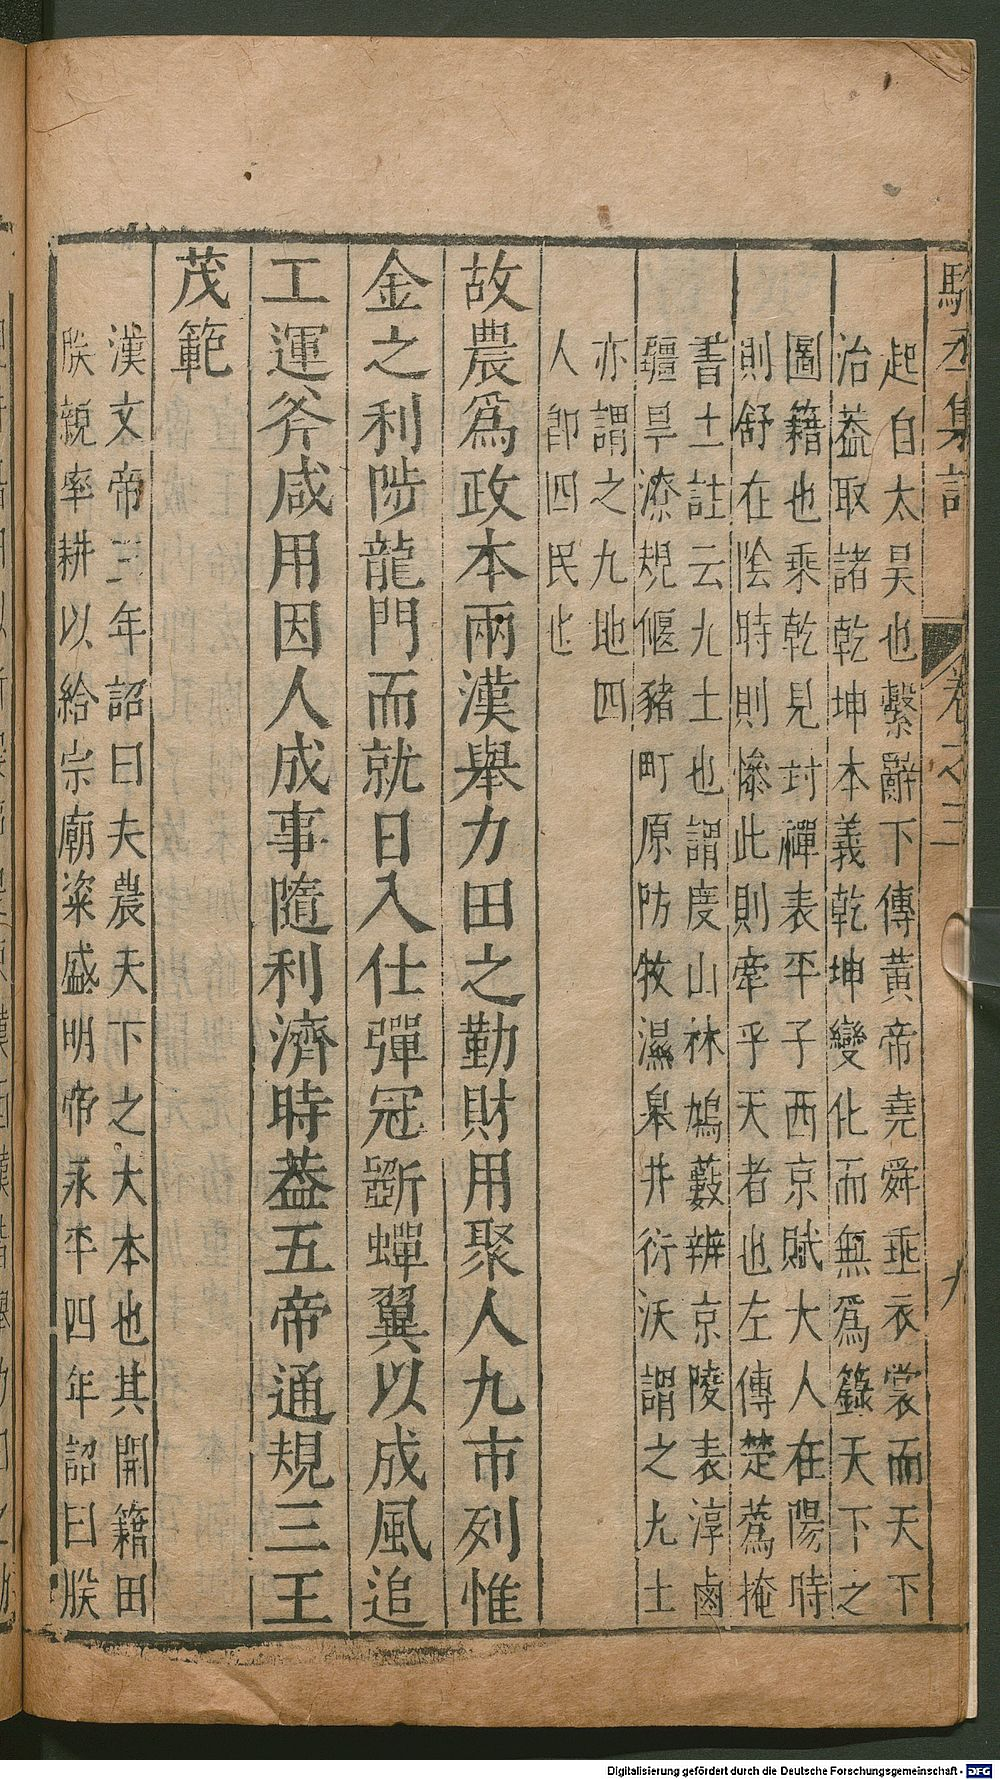 駱丞集註 卷之三 九
起自太昊也繫辭下傳黃帝堯舜垂衣裳而天下
治蓋取諸乾坤本義乾坤變化而無爲籙天下之
圖籍也乘乾見封禪表平子西京賦大人在陽時
則舒在陰時則慘此則牽乎天者也左傳楚蒍掩
書土註云九土也謂度山林鳩藪辨京陵表淳鹵
疆旱潦規偃豬町原防牧濕臯井衍沃謂之九土
亦謂之九地四
人卽四民也
故農爲政本兩漢舉力田之勤財用聚人九市列惟
金之利陟龍門而就日入仕彈冠斵蟬翼以成風追
工運斧咸用因人成事隨利濟時蓋五帝通規三王
茂範
漢文帝三年詔曰夫農天下之大本也其開籍田
朕親率耕以給宗廟粢盛明帝永平四年詔曰朕
Digitalisierung gefördert durch die Deutsche Forschungsgemeinschaft - DFG